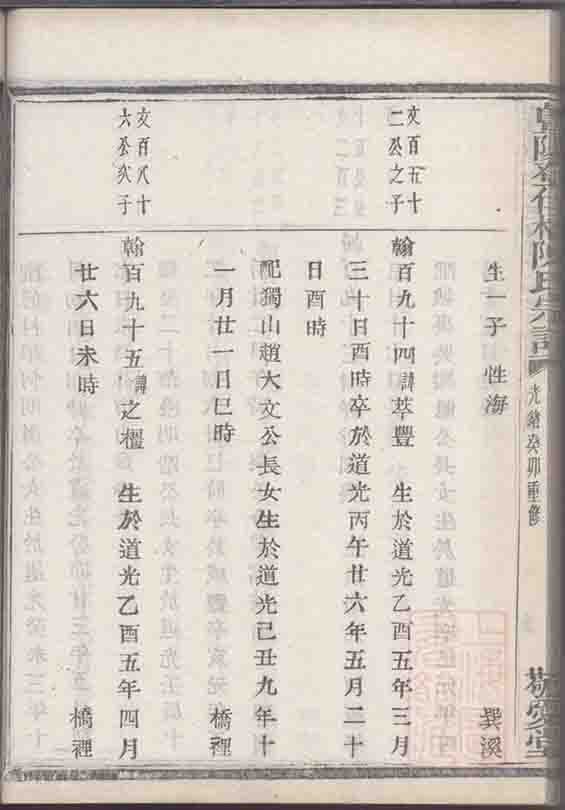 陳氏宗譜
光緒癸卯重修
敬愛堂
生一子 性海
巽溪
文百五十
二公之子
翰百九十四諱萃豐 生於道光乙酉五年三月
三十日酉時卒於道光丙午廿六年五月二十
日酉時
配獨山趙大文公長女生於道光己丑九年十
一月廿一日巳時
橋裡
文百八十
六公次子
翰百九十五諱之橿 生於道光乙酉五年四月
廿六日未時
橋裡